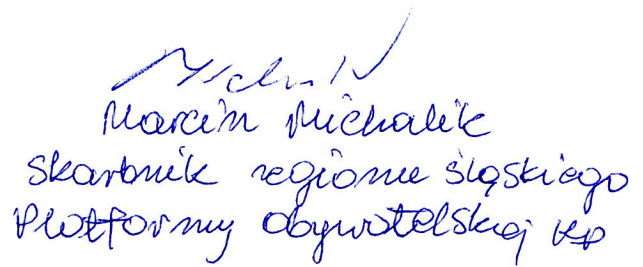 Marcin Michalik
skarbnik regionu śląskiego
Platformy obywatelskiej RP